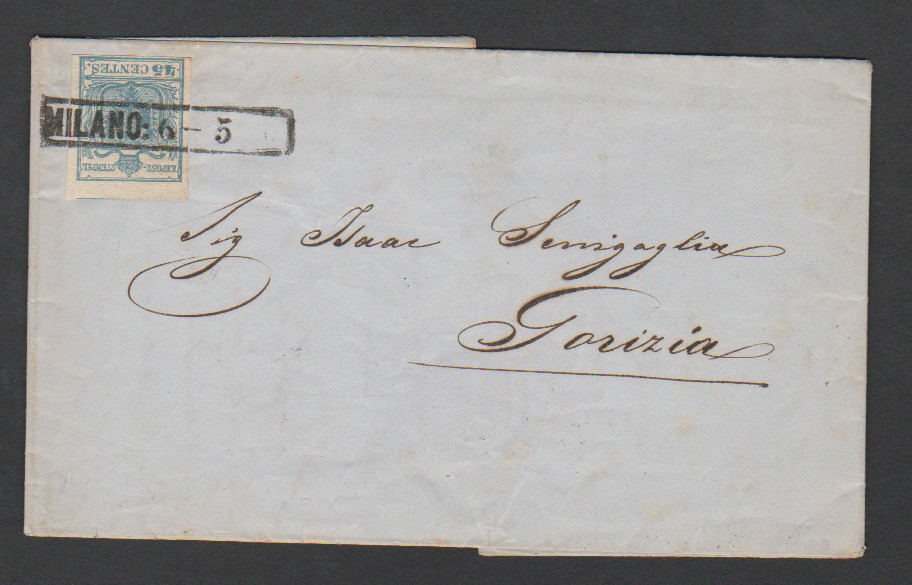 45 CENTES.
MILANO: 6 – 5
KKPOST-STEMPEL
Sig Isaac Senigaglia
Gorizia